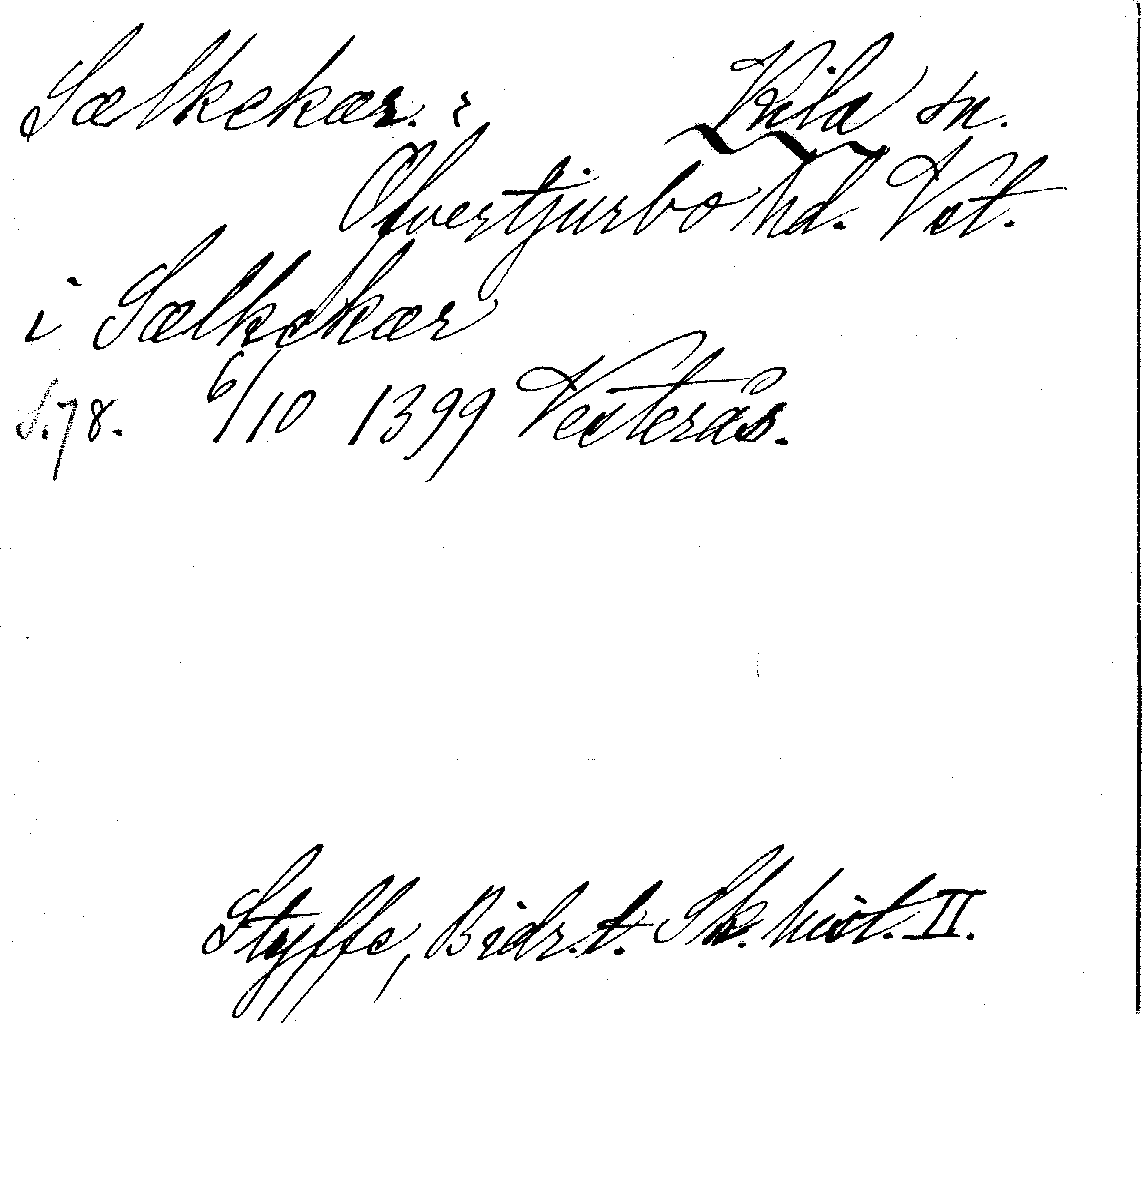 Sælkekær. : Kila sn.
Øfvertjurbo hd. Vst.
i Sælkekær
S. 78. 6/10 1399 Vesterås.
Styffe, Bidr. t. Sk. hist. II.